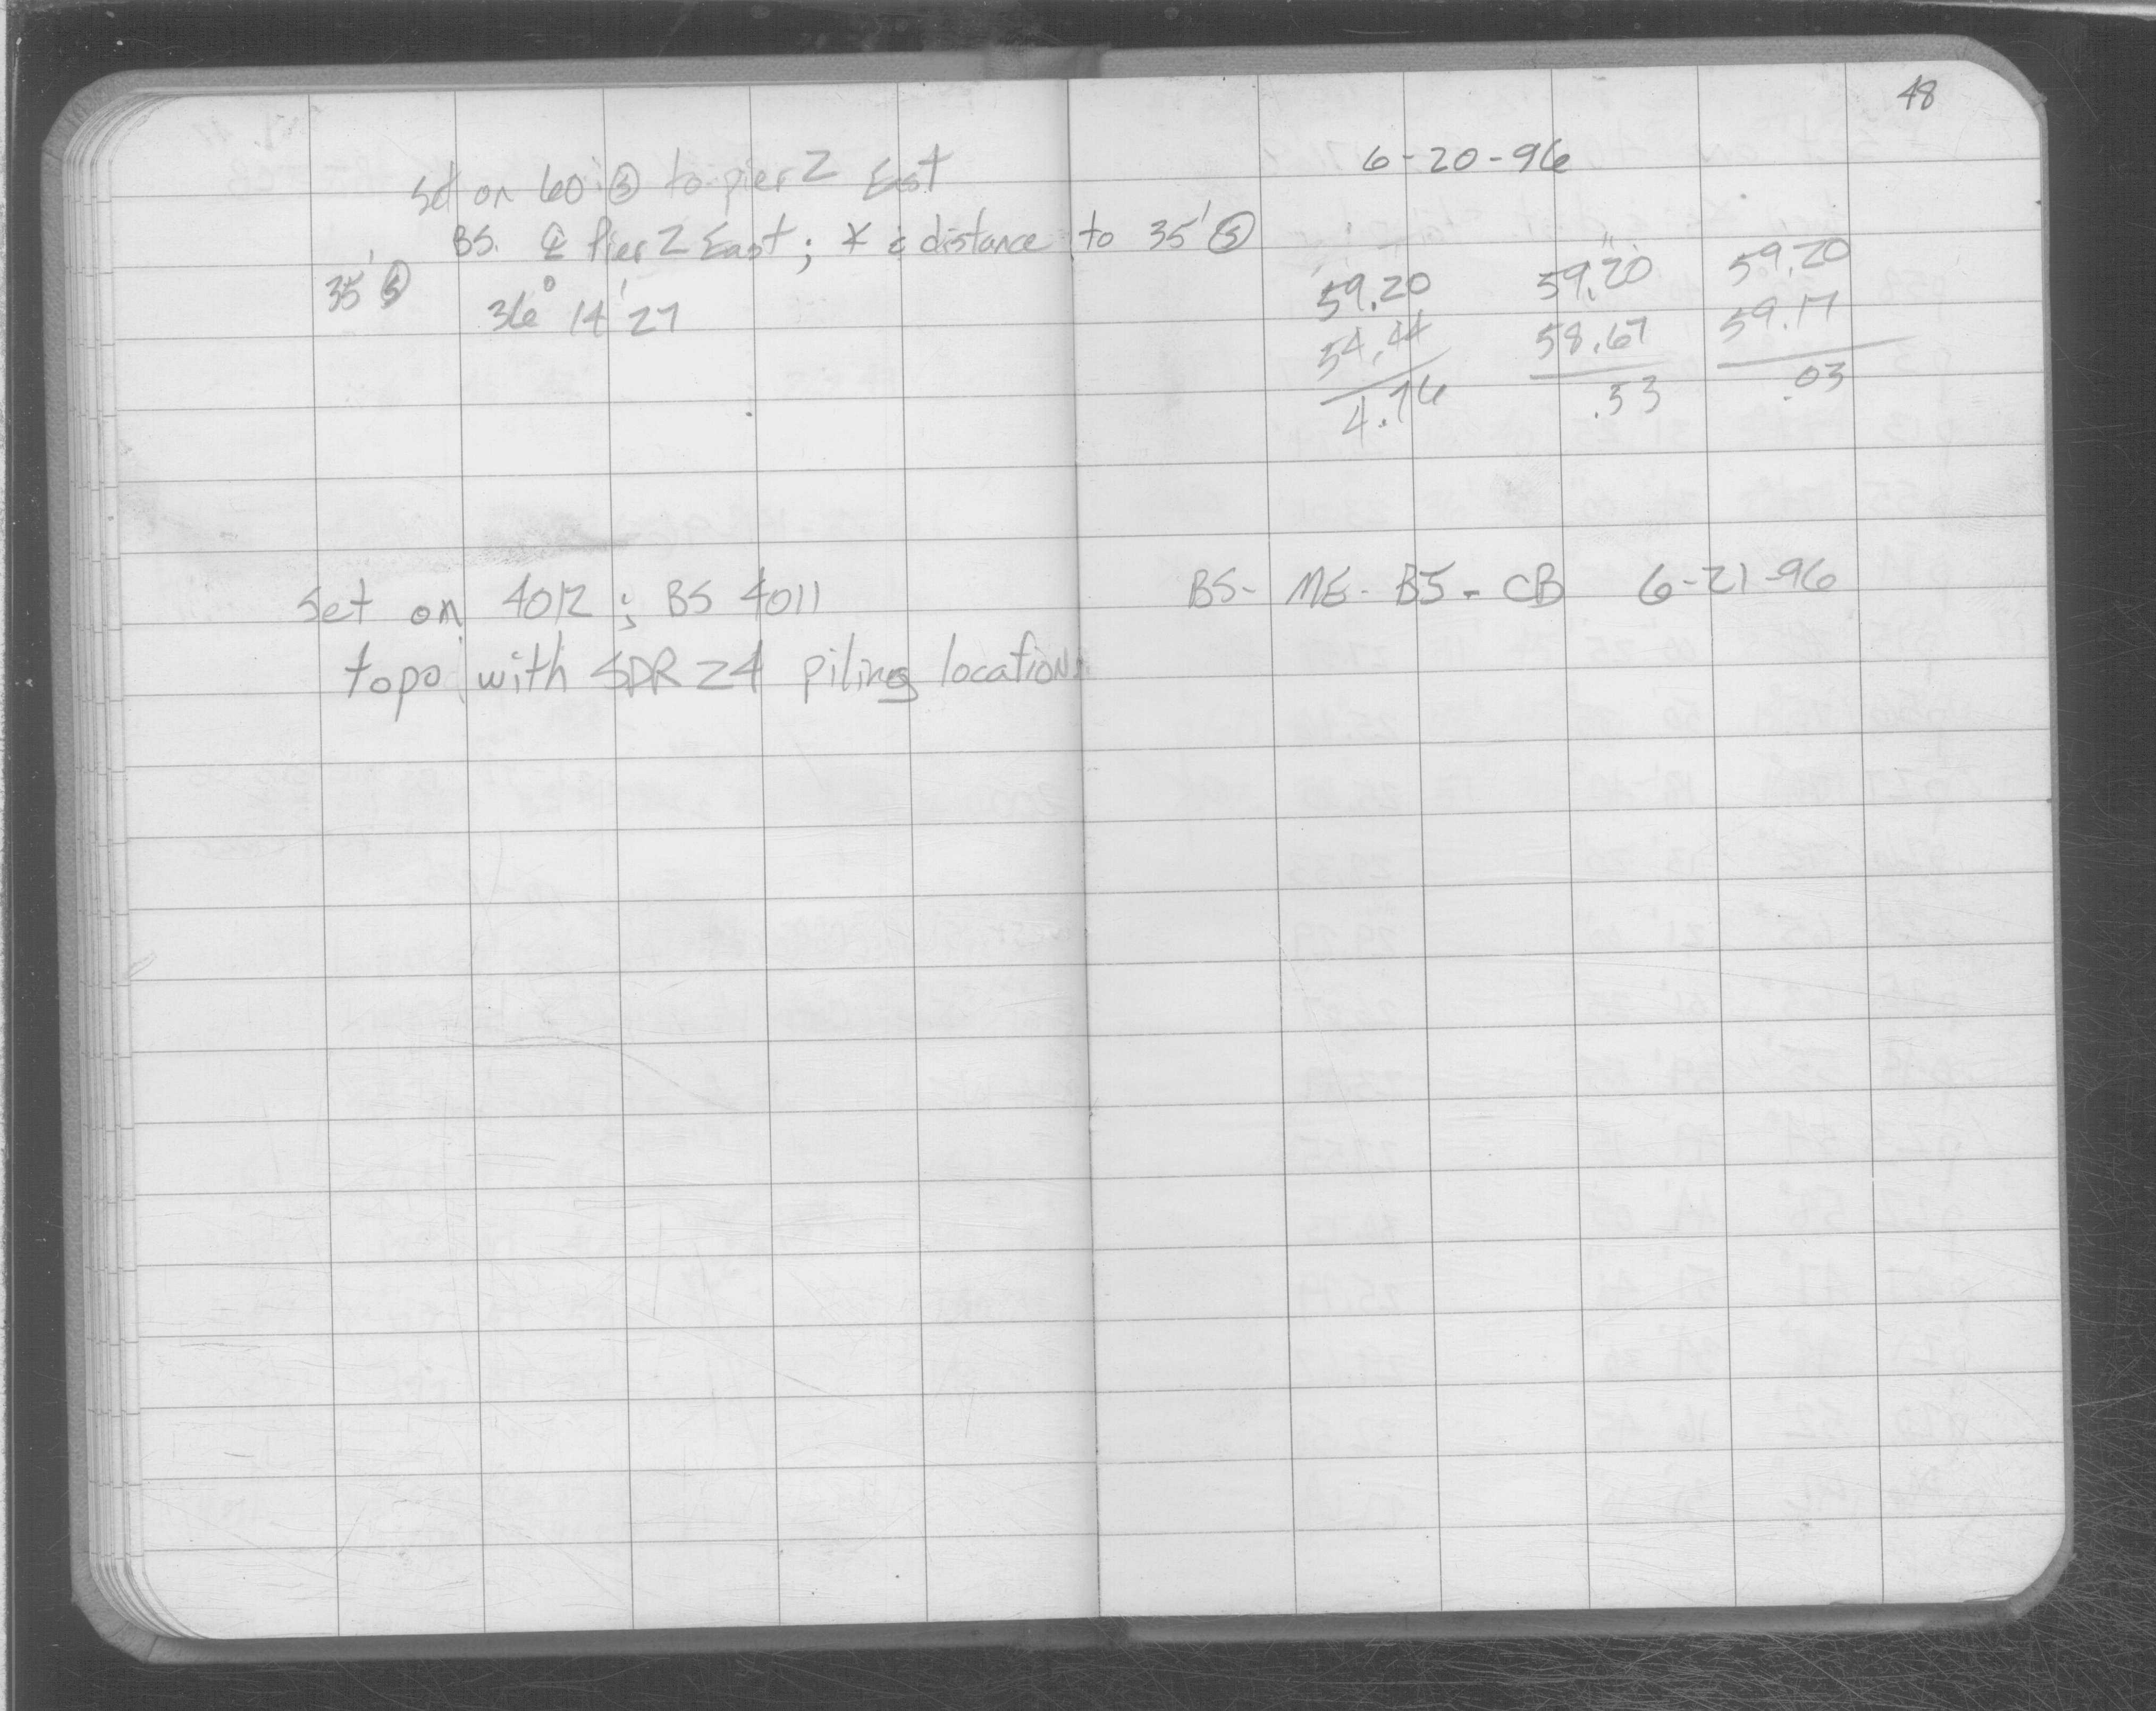 48
6-20-96
Set on 60' Ⓢ to pier 2 East
BS. ℄ Pier 2 East; ∡ & distance to 35' Ⓢ
35' Ⓢ 36° 14' 27
59.20 59.20 59.20
54.44 58.67 59.17
4.76 .53 .03
Set on 4012; BS 4011 BS- ME- BJ- CB 6-21-96
topo with SDR 24 piling locations